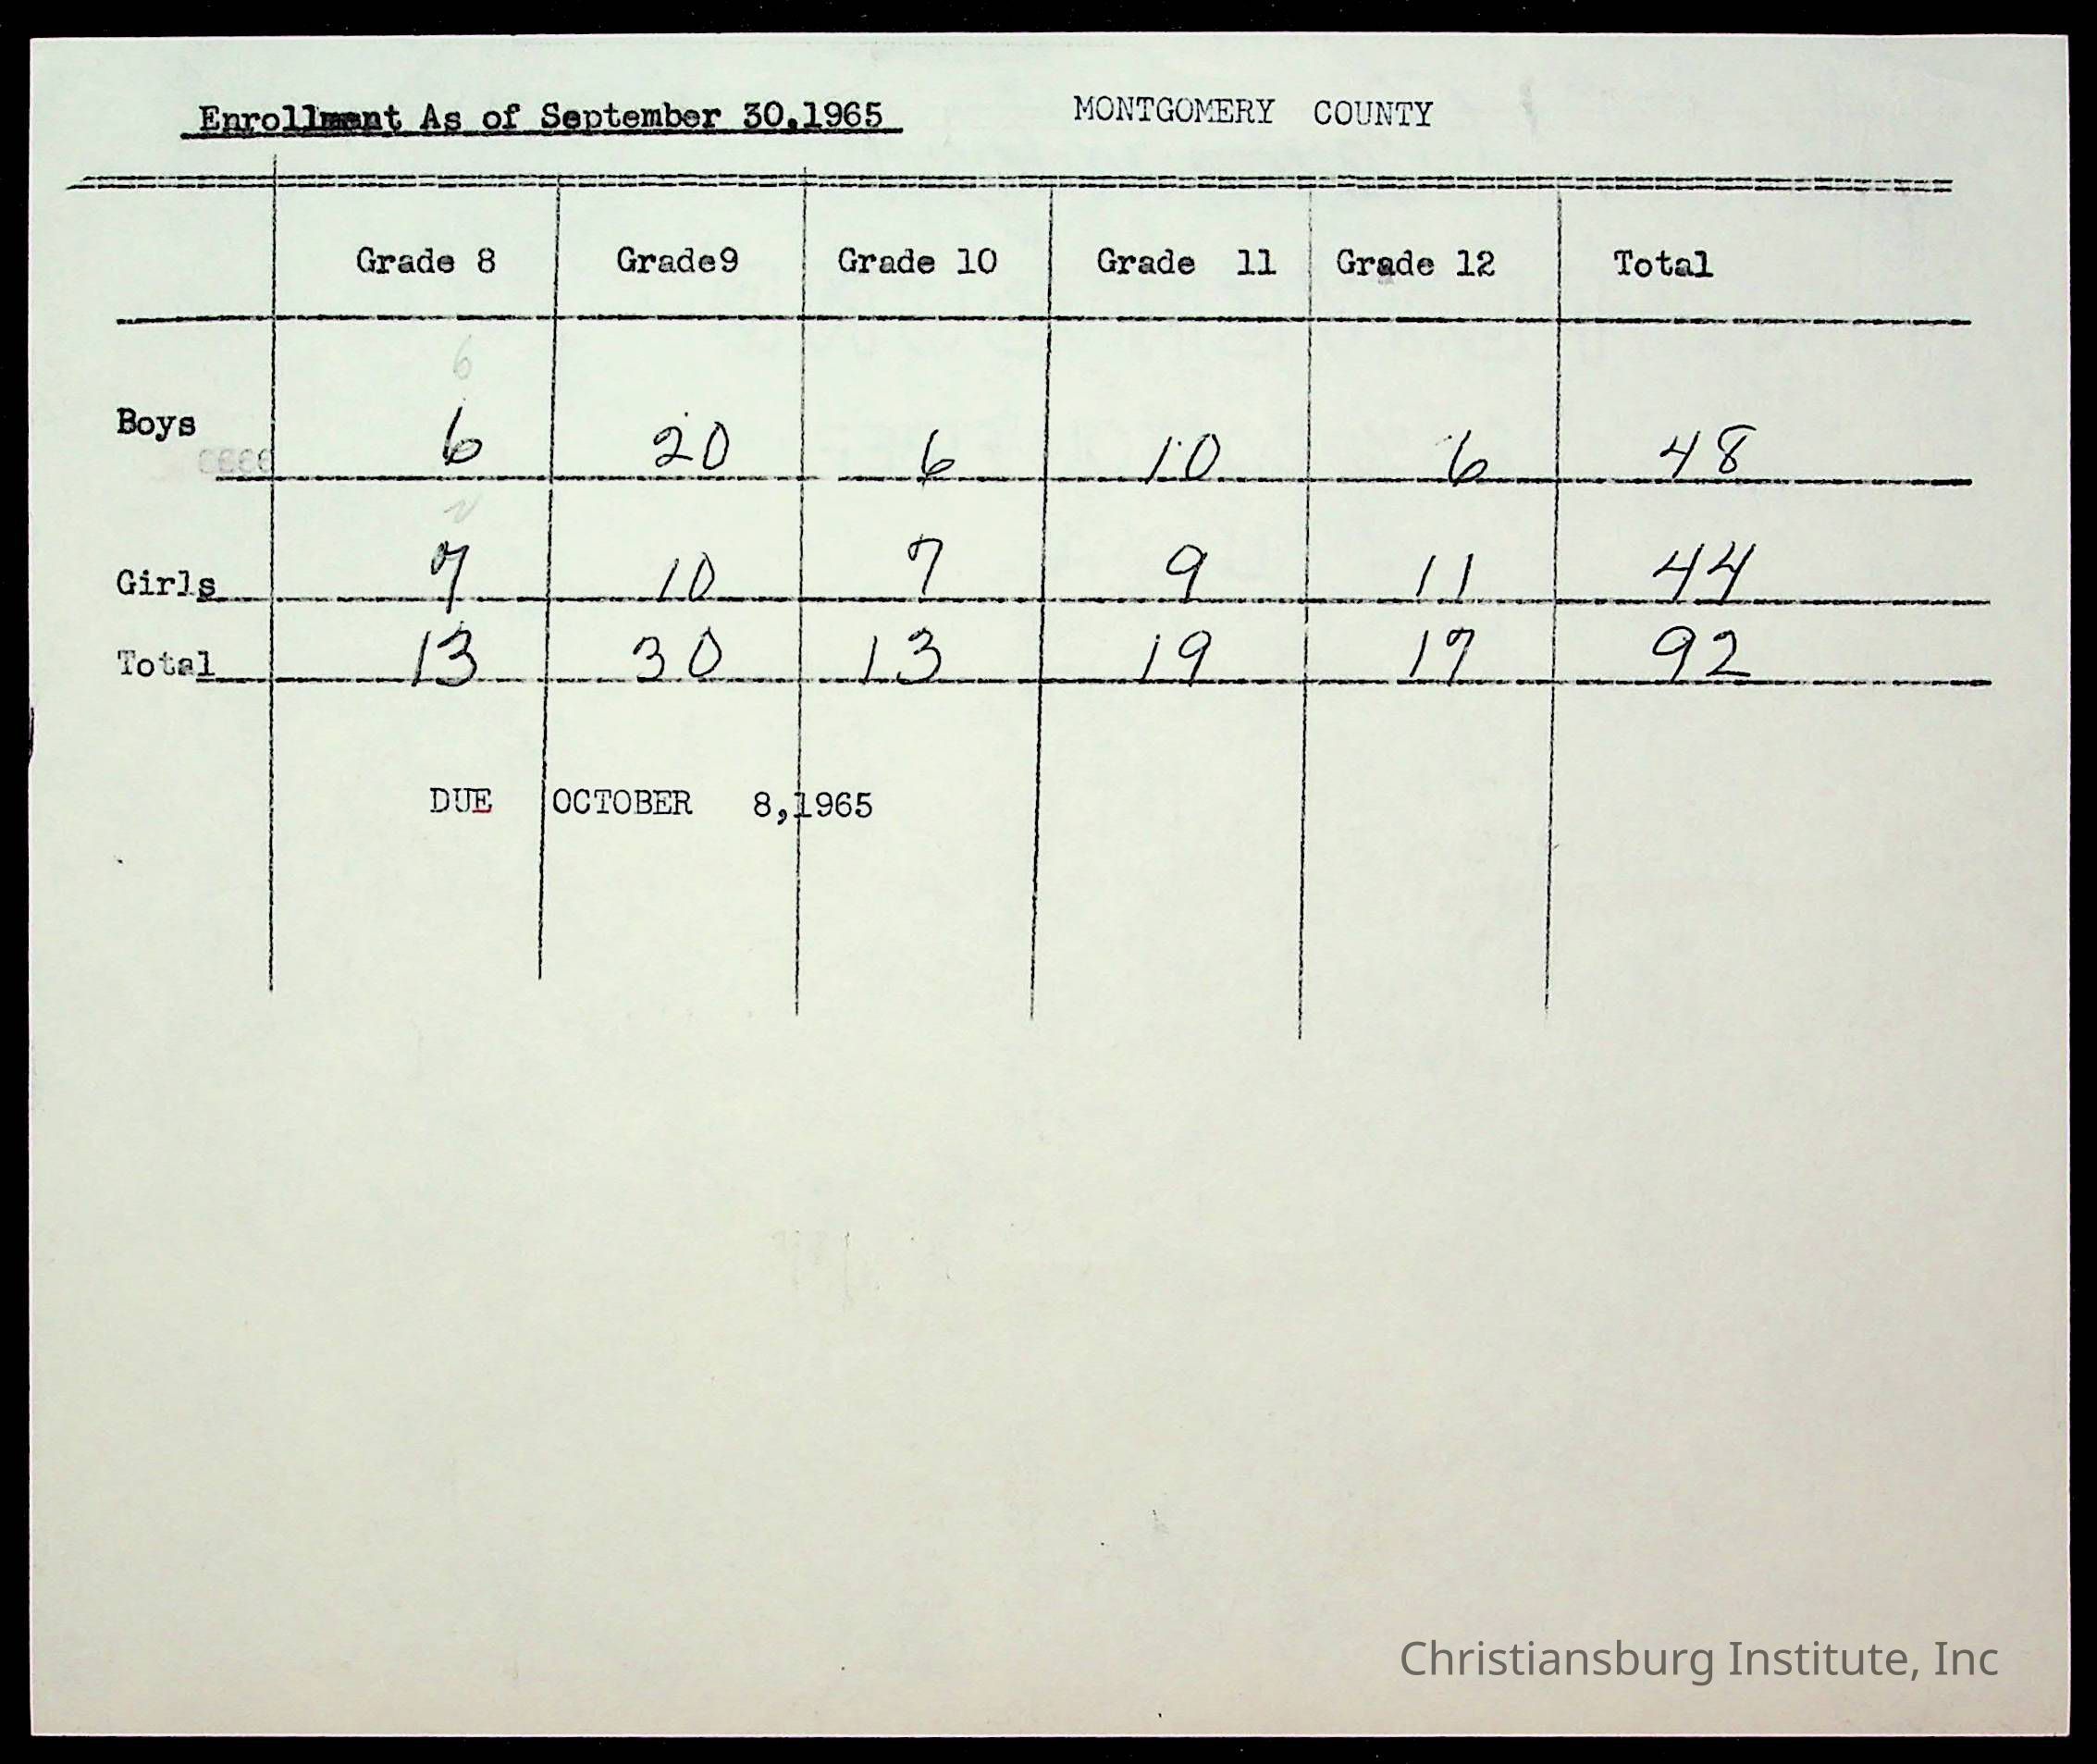 Enrollment As of September 30,1965 MONTGOMERY COUNTY
Grade 8 Grade9 Grade 10 Grade 11 Grade 12 Total
6
Boys 6 20 6 10 6 48
Girls 7 10 7 9 11 44
Total 13 30 13 19 17 92
DUE OCTOBER 8,1965
Christiansburg Institute, Inc